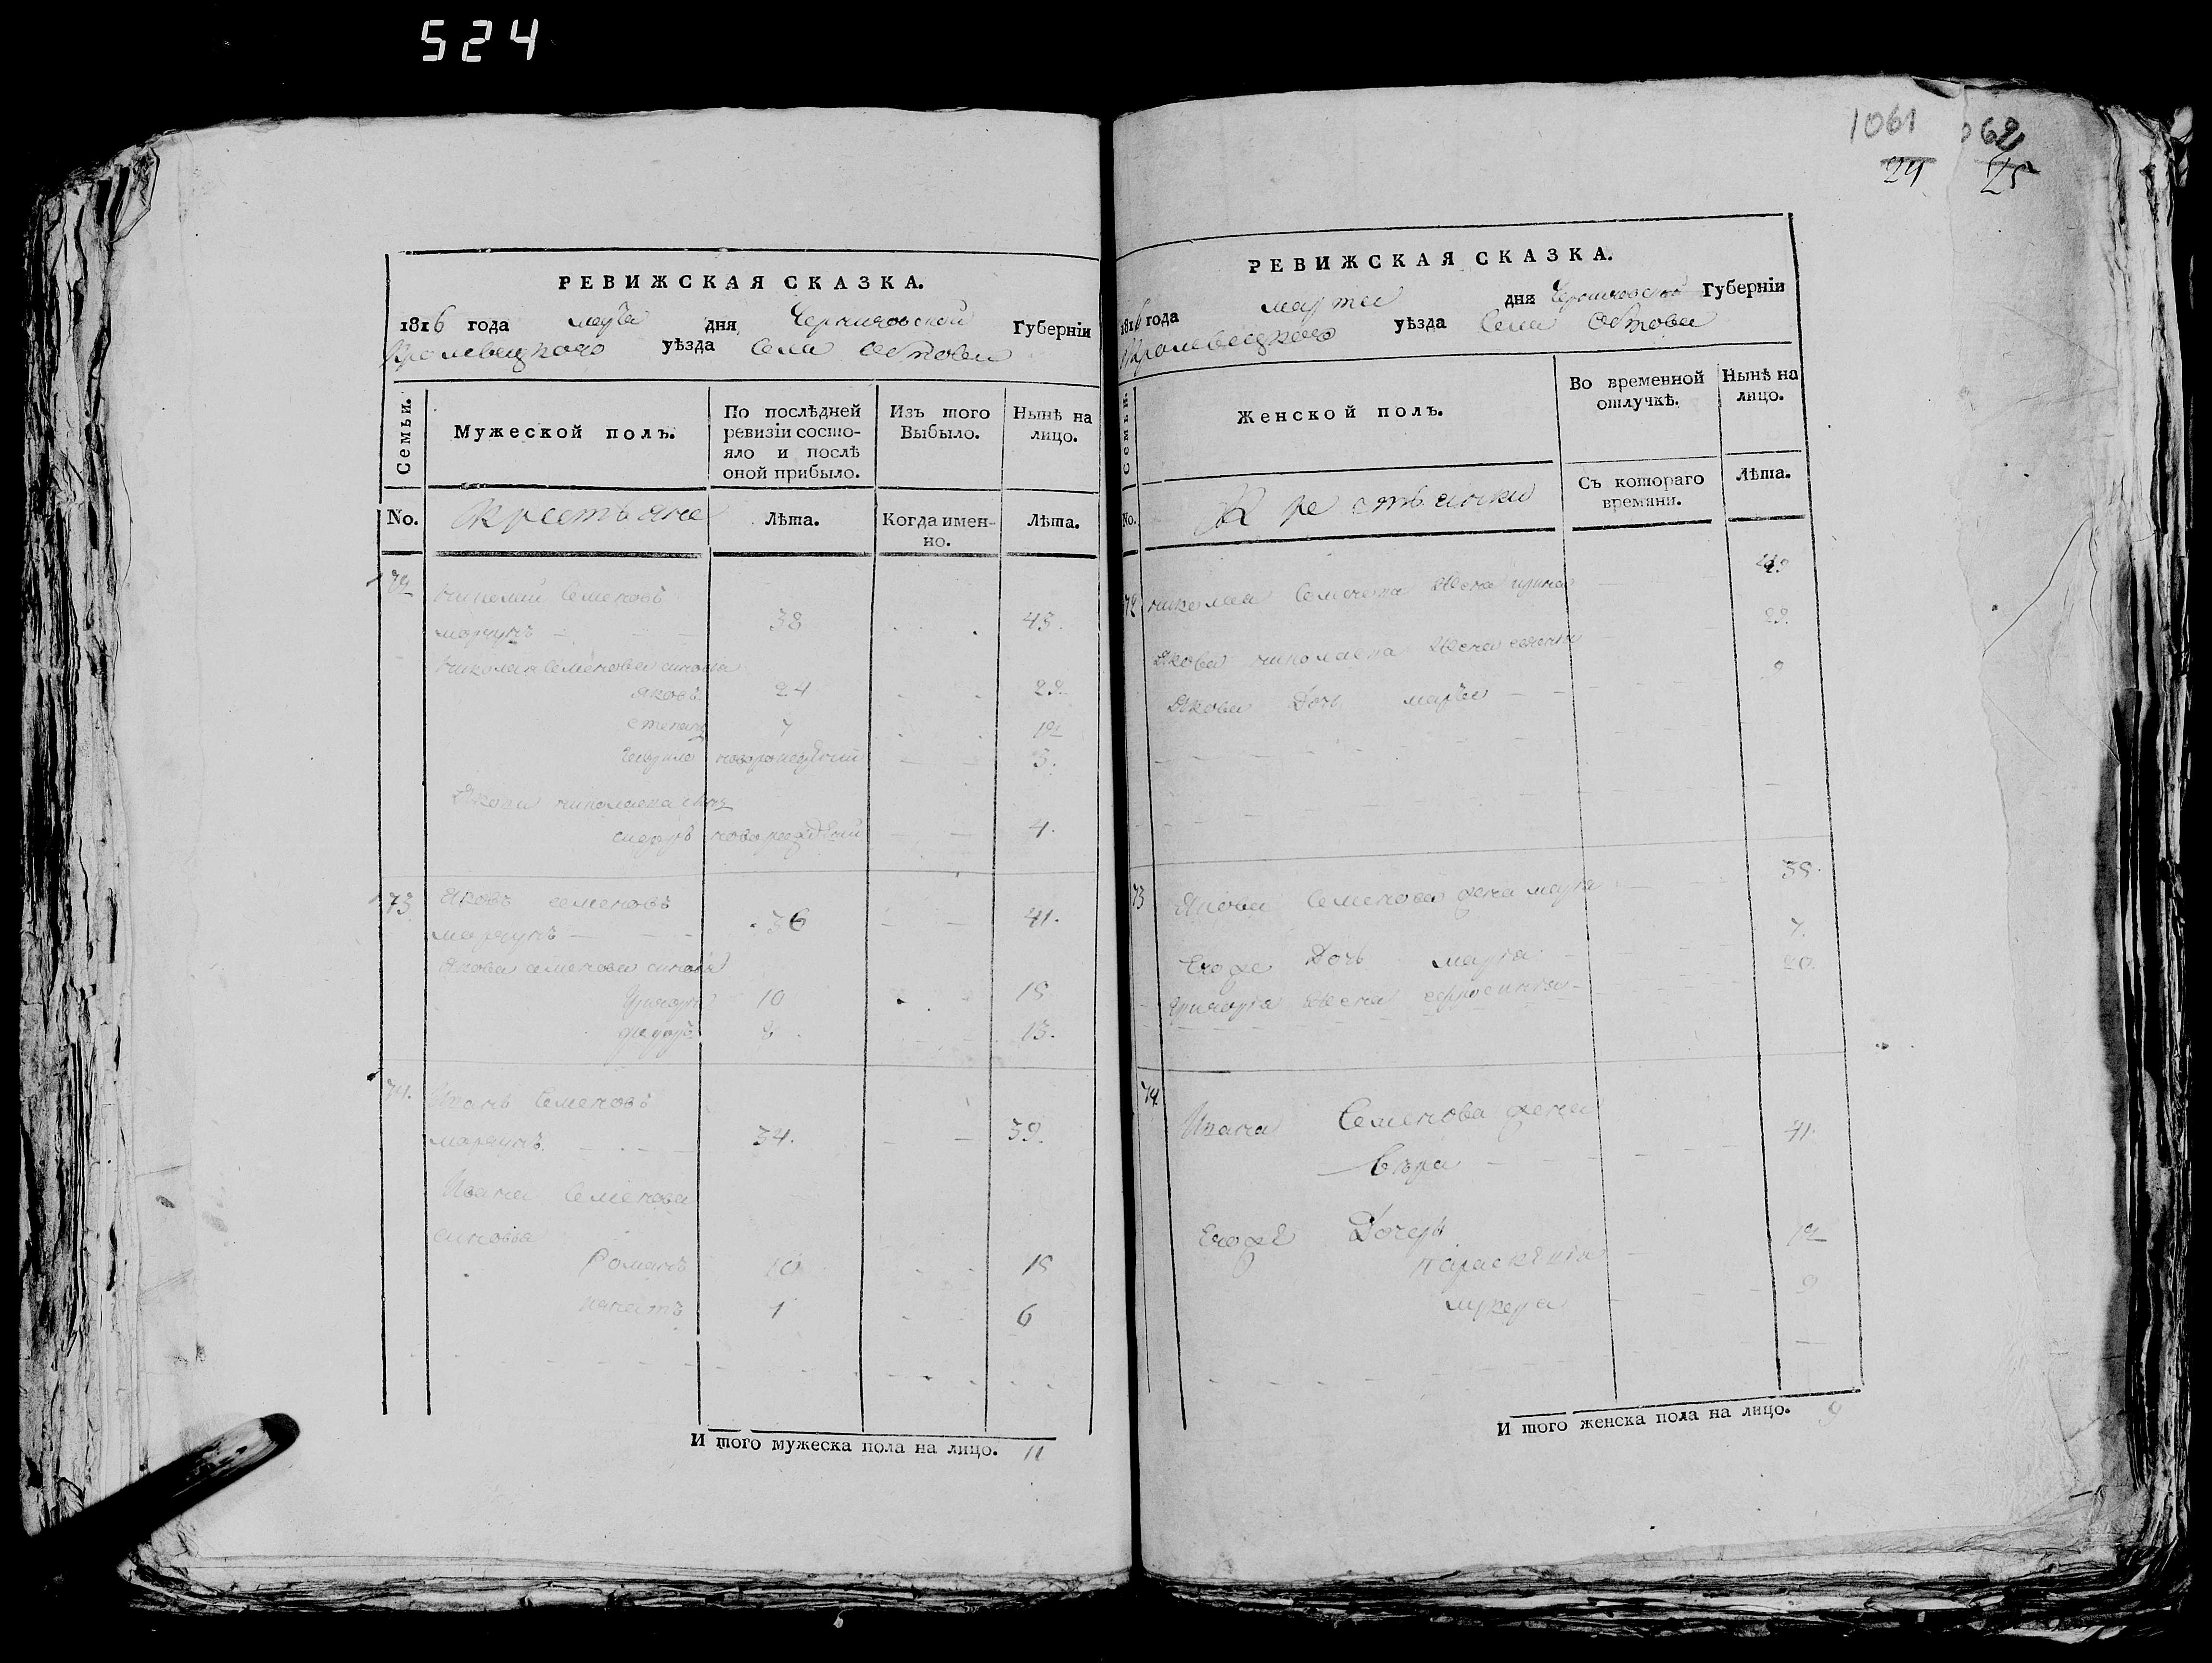 524
1061 062
24 25
РЕВИЖСКАЯ СКАЗКА.
1816 года марта дня Черниговской Губерніи
Кролевецкого уѣзда Села Обтова
Семьи.
Мужеской полъ.
По послѣдней ревизіи состо-
яло и послѣ
оной прибыло.
Изъ того
Выбыло.
Нынѣ на
лицо.
No.
Крестьяне
Лѣта.
Когда имен-
но.
Лѣта.
172 Николай Семеновъ
38 43.
Николая Семенова синовья
Яковъ 24 29.
степанъ 7 12
Гаврило новорожденій 3.
Якова николаева синъ
новорожденій 4.
173 Яковъ семеновъ
36 41.
Якова семенова синовья
Григорій 10 15
федоръ 8 13.
74. Иванъ Семеновъ
34. 39.
Ивана Семенова
синовья
Романъ 10 15
Игнатъ 1 6
И того мужеска пола на лицо. 11
РЕВИЖСКАЯ СКАЗКА.
1816 года марта дня Черниговской Губерніи
Кролевецкого уѣзда Села Обтова
Семьи.
Женской полъ.
Во временной
отлучкѣ.
Нынѣ на
лицо.
No.
Крестьянки
Съ котораго
времяни.
Лѣта.
72 николая Семенова Жена ирина
Якова николаева Жена 29.
Якова Дочь марья 9
73 Якова Семенова жена марта
Егоже Дочь марта 7.
Григорія Жена ефросинія 20.
74 Ивана Семенова жена
Вѣра 41.
Егожѣ Дочери
параскѣвія 12
лукеря 9
И того женска пола на лицо. 9